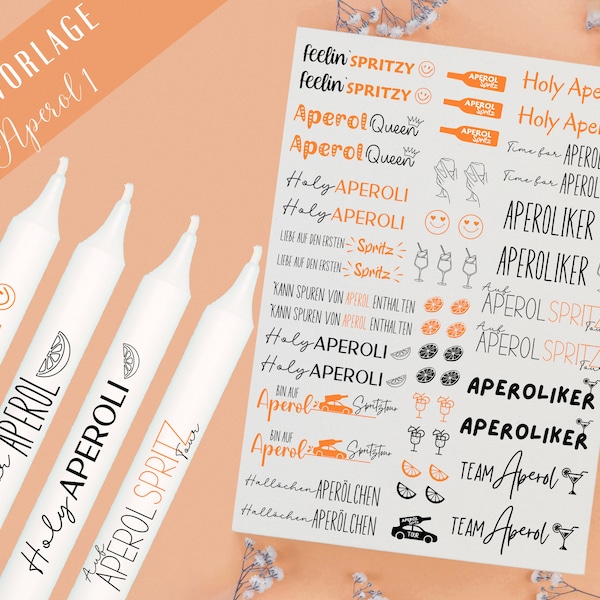 VORLAGE
Aperol 1
feelin' SPRITZY
feelin' SPRITZY
Aperol Queen
Aperol Queen
Holy APEROLI
Holy APEROLI
LIEBE AUF DEN ERSTEN Spritz
LIEBE AUF DEN ERSTEN Spritz
KANN SPUREN VON APEROL ENTHALTEN
KANN SPUREN VON APEROL ENTHALTEN
Holy APEROLI
Holy APEROLI
BIN AUF
Aperol Spritztour
BIN AUF
Aperol Spritztour
Hallöchen APERÖLCHEN
Hallöchen APERÖLCHEN
APEROL
Spritz
APEROL
Spritz
APEROL
Spritz
APEROL
Spritz
TOUR
Holy Ape
Holy Apero
Time for APERO
Time for APERO
APEROLIKER
APEROLIKER
Auf
APEROL SPRITZ
Tour
Auf
APEROL SPRITZ
Tour
APEROLIKER
APEROLIKER
TEAM Aperol
TEAM Aperol
APEROL
Holy APEROLI
Auf APEROL SPRITZ Tour